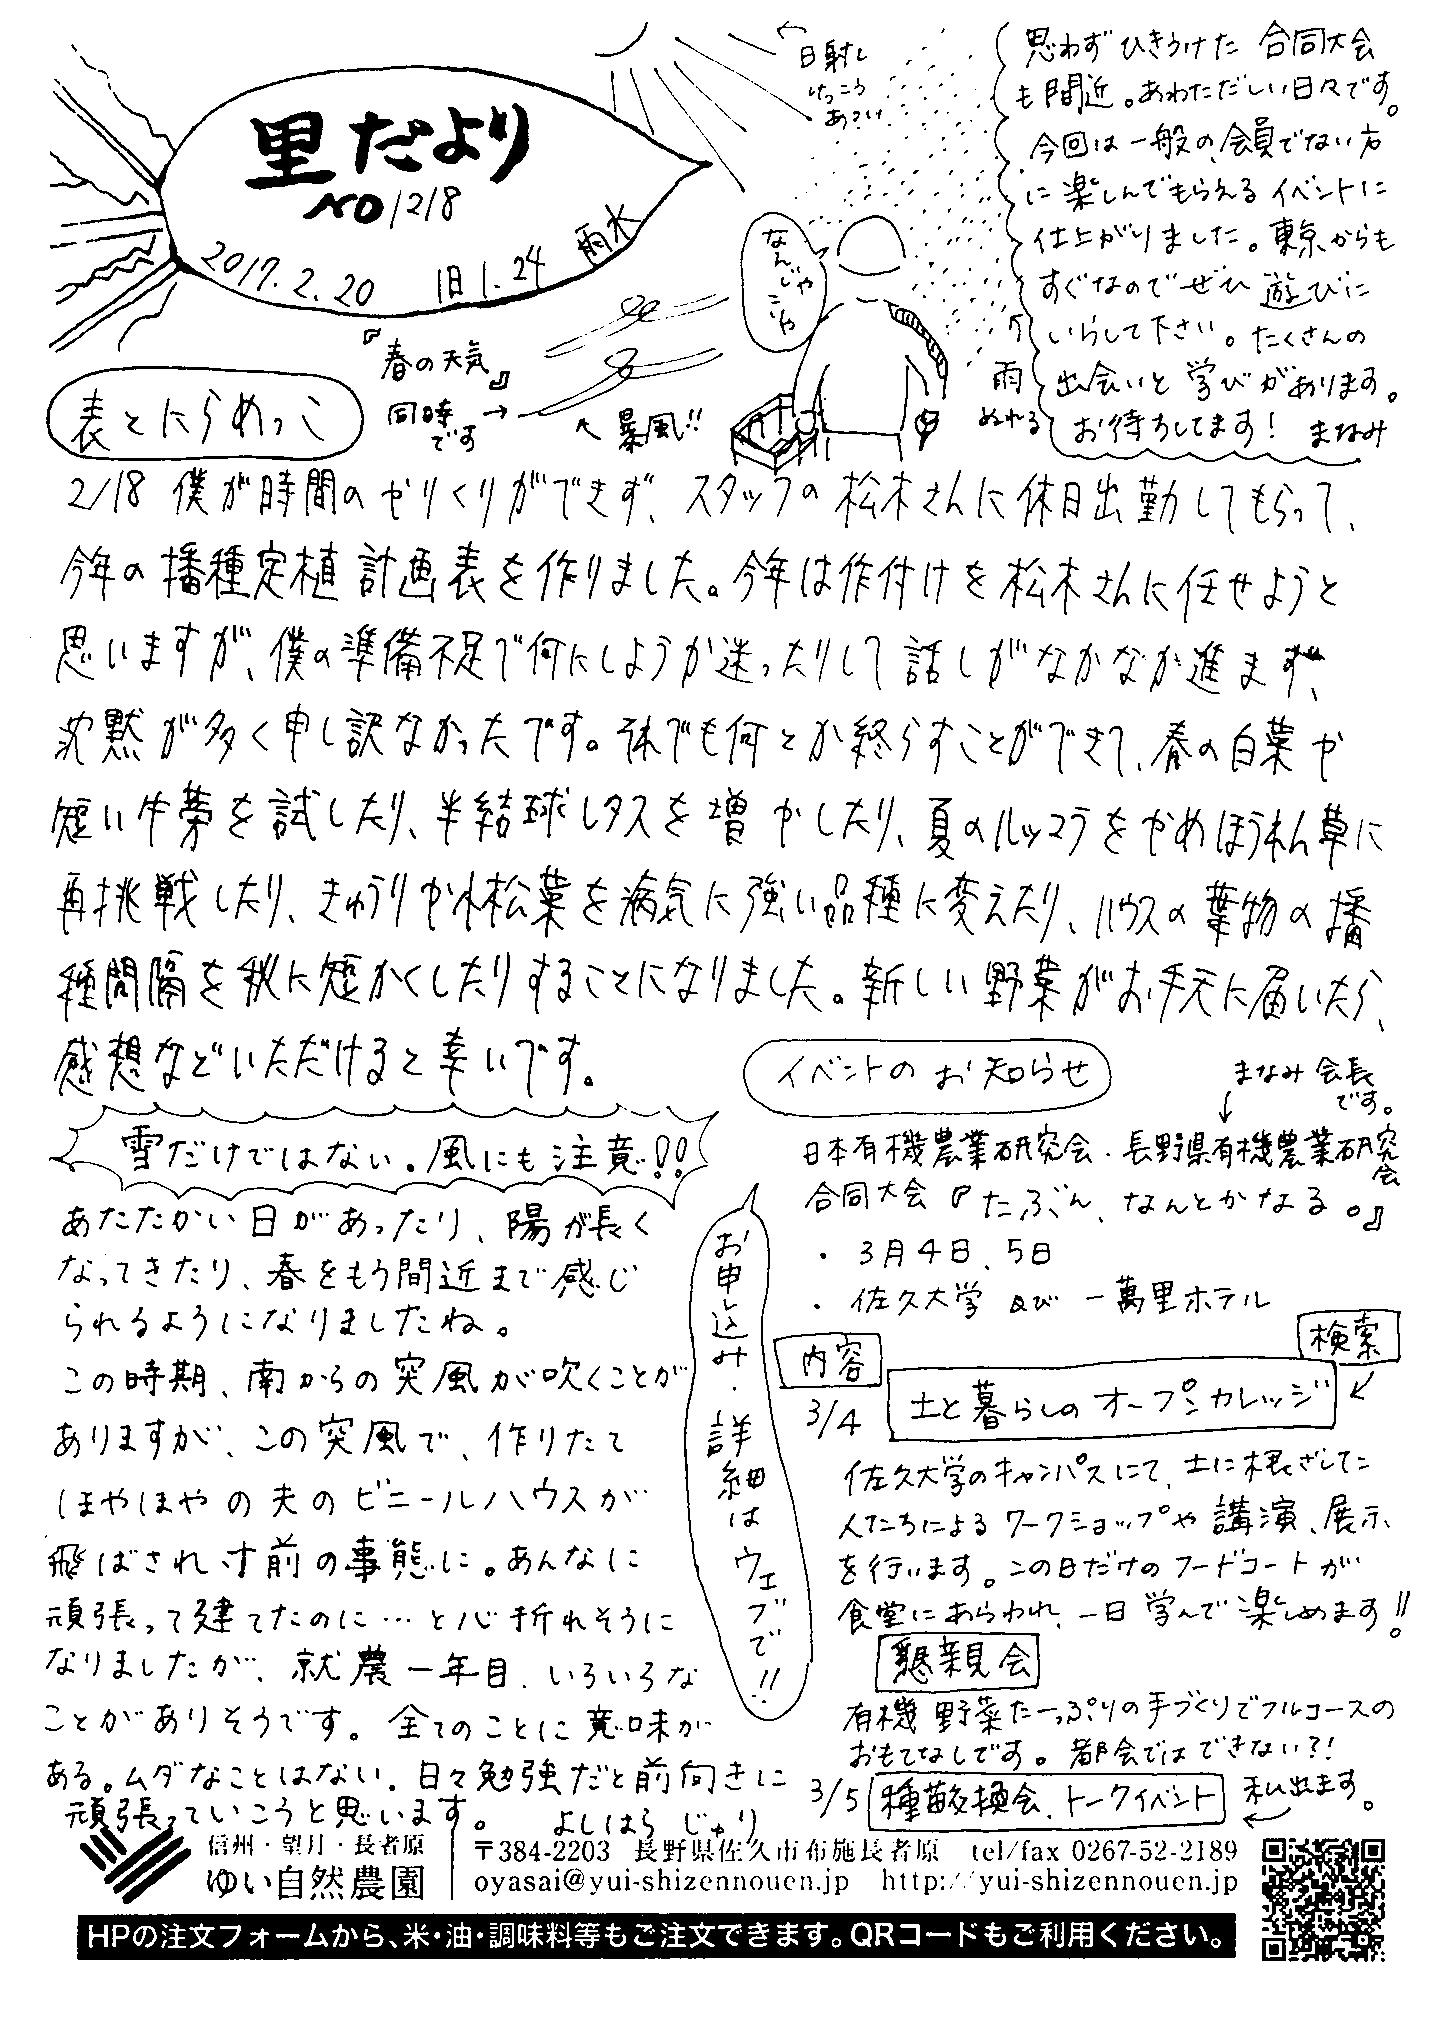 里だより
NO 1218
2017.2.20 旧1.24 雨水
『春の天気』
同時です→
↖暴風!!
←日射し
けっこう
あつい
なんじゃ
こりゃ
↑
雨
ぬれる
思わずひきうけた 合同大会
も間近。あわただしい日々です。
今回は一般の、会員でない方
に楽しんでもらえるイベントに
仕上がりました。東京からも
すぐなのでぜひ遊びに
いらして下さい。たくさんの
出会いと学びがあります。
お待ちしてます! まなみ
表とにらめっこ
2/18 僕が時間のやりくりができず、スタッフの松木さんに休日出勤してもらって、
今年の播種定植計画表を作りました。今年は作付けを松木さんに任せようと
思いますが、僕の準備不足で何にしようか迷ったりして話しがなかなか進まず、
沈黙が多く申し訳なかったです。それでも何とか終らすことができて、春の白菜や
短い牛蒡を試したり、半結球レタスを増やしたり、夏のルッコラをやめほうれん草に
再挑戦したり、きゅうりや小松菜を病気に強い品種に変えたり、ハウスの葉物の播
種間隔を秋に短かくしたりすることになりました。新しい野菜がお手元に届いたら、
感想などいただけると幸いです。
雪だけではない。風にも注意!!
あたたかい日があったり、陽が長く
なってきたり、春をもう間近まで感じ
られるようになりましたね。
この時期、南からの突風が吹くことが
ありますが、この突風で、作りたて
ほやほやの夫のビニールハウスが
飛ばされ寸前の事態に。あんなに
頑張って建てたのに…と心折れそうに
なりましたが、就農一年目、いろいろな
ことがありそうです。全てのことに意味が
ある。ムダなことはない。日々勉強だと前向きに
頑張っていこうと思います。 よしはら じゅり
お申込み・詳細はウェブで!!
イベントのお知らせ
まなみ会長
です。
↓
日本有機農業研究会・長野県有機農業研究会
合同大会『たぶん、なんとかなる。』
・3月4日、5日
・佐久大学 及び 一萬里ホテル
内容
検索
3/4 土と暮らしのオープンカレッジ ↙
佐久大学のキャンパスにて、土に根ざした
人たちによるワークショップや講演、展示
を行います。この日だけのフードコートが
食堂にあらわれ、一日学んで楽しめます!!
懇親会
有機野菜たーっぷりの手づくりでフルコースの
おもてなしです。都会ではできない?!
3/5 種苗交換会、トークイベント ← 私出ます。
信州・望月・長者原
ゆい自然農園
〒384-2203 長野県佐久市布施長者原 tel/fax 0267-52-2189
oyasai@yui-shizennouen.jp http://yui-shizennouen.jp
HPの注文フォームから、米・油・調味料等もご注文できます。QRコードもご利用ください。